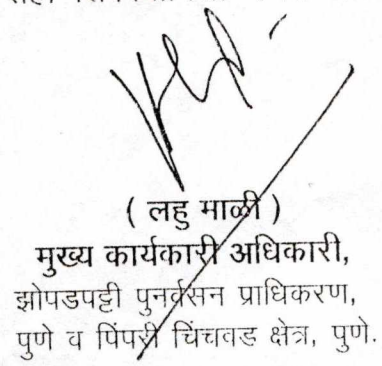 ( लहु माळी )
मुख्य कार्यकारी अधिकारी,
झोपडपट्टी पुनर्वसन प्राधिकरण,
पुणे व पिंपरी चिंचवड क्षेत्र, पुणे.